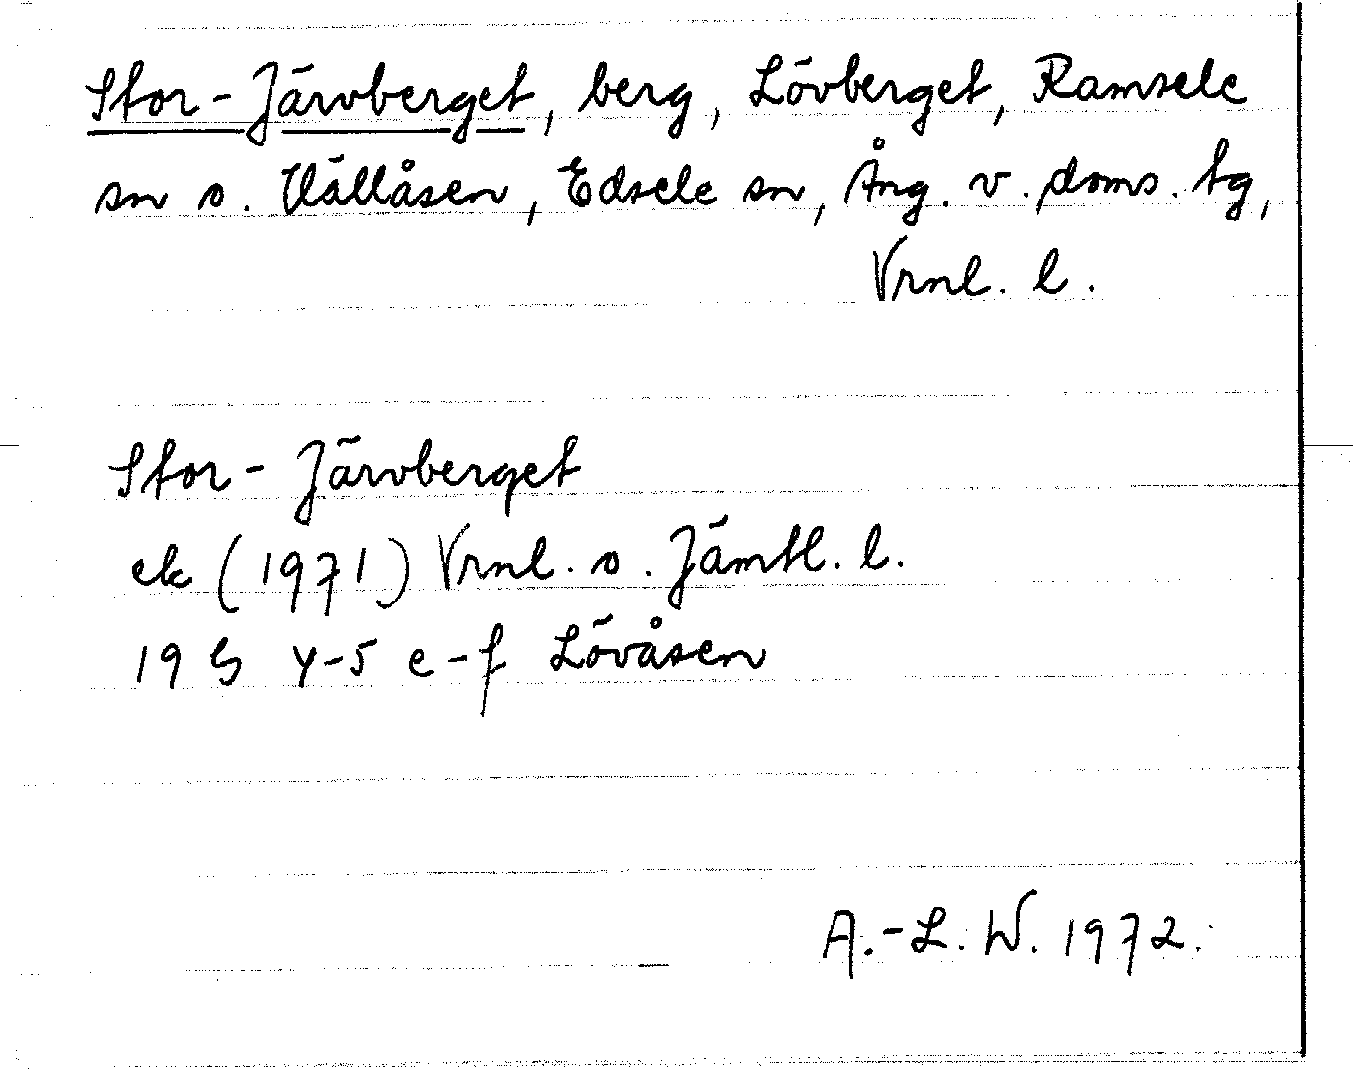 Stor-Järvberget, berg, Lövberget, Ramsele
sn o. Vällåsen, Edsele sn, Ång. v. doms. tg,
Vrnl. l.
Stor-Järvberget
ek (1971) Vrnl. o. Jämtl. l.
19 G 4-5 e-f Lövåsen
A.-L. W. 1972.